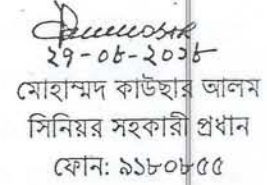 ২৭-০৮-২০১৮
মোহাম্মদ কাউছার আলম
সিনিয়র সহকারী প্রধান
ফোন: ৯১৮০৮৫৫